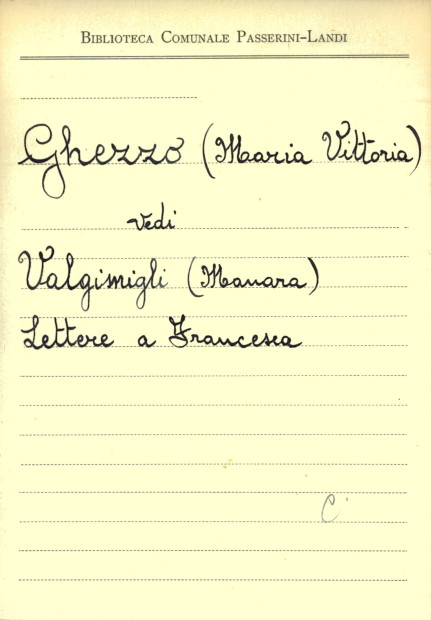 BIBLIOTECA COMUNALE PASSERINI-LANDI
Ghezzo (Maria Vittoria)
vedi
Valgimigli (Manara)
Lettere a Francesca
C